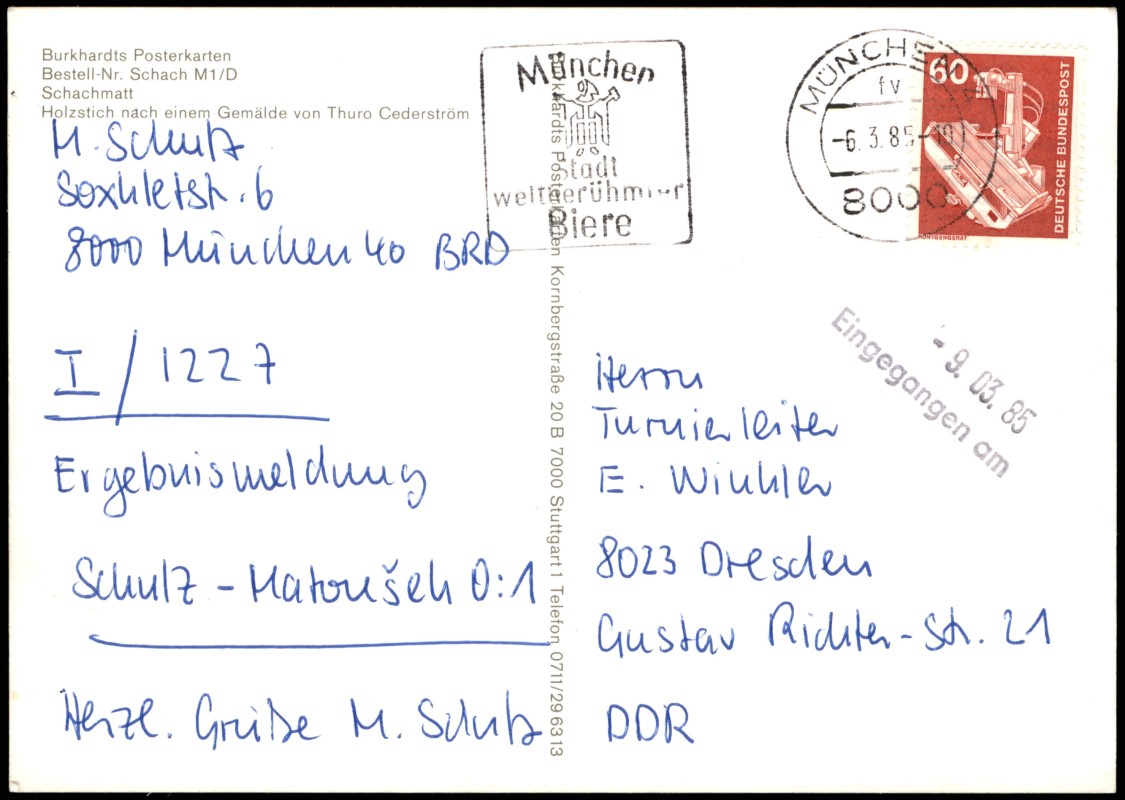 Burkhardts Posterkarten
Bestell-Nr. Schach M1/D
Schachmatt
Holzstich nach einem Gemälde von Thuro Cederström
M. Schulz
Soxhletstr. 6
8000 München 40 BRD
I / 1227
Ergebnismeldung
Schulz - Matoušek 0:1
Herzl. Grüße M. Schulz
Burkhardts Posterkarten Kornbergstraße 20 B 7000 Stuttgart 1 Telefon 0711/296313
München
Stadt
weltberühmter
Biere
MÜNCHEN
fv
-6.3.85-19
8000
60
DEUTSCHE BUNDESPOST
RÖNTGENGERÄT
- 9. 03. 85
Eingegangen am
Herrn
Turnierleiter
E. Winkler
8023 Dresden
Gustav Richter-Str. 21
DDR